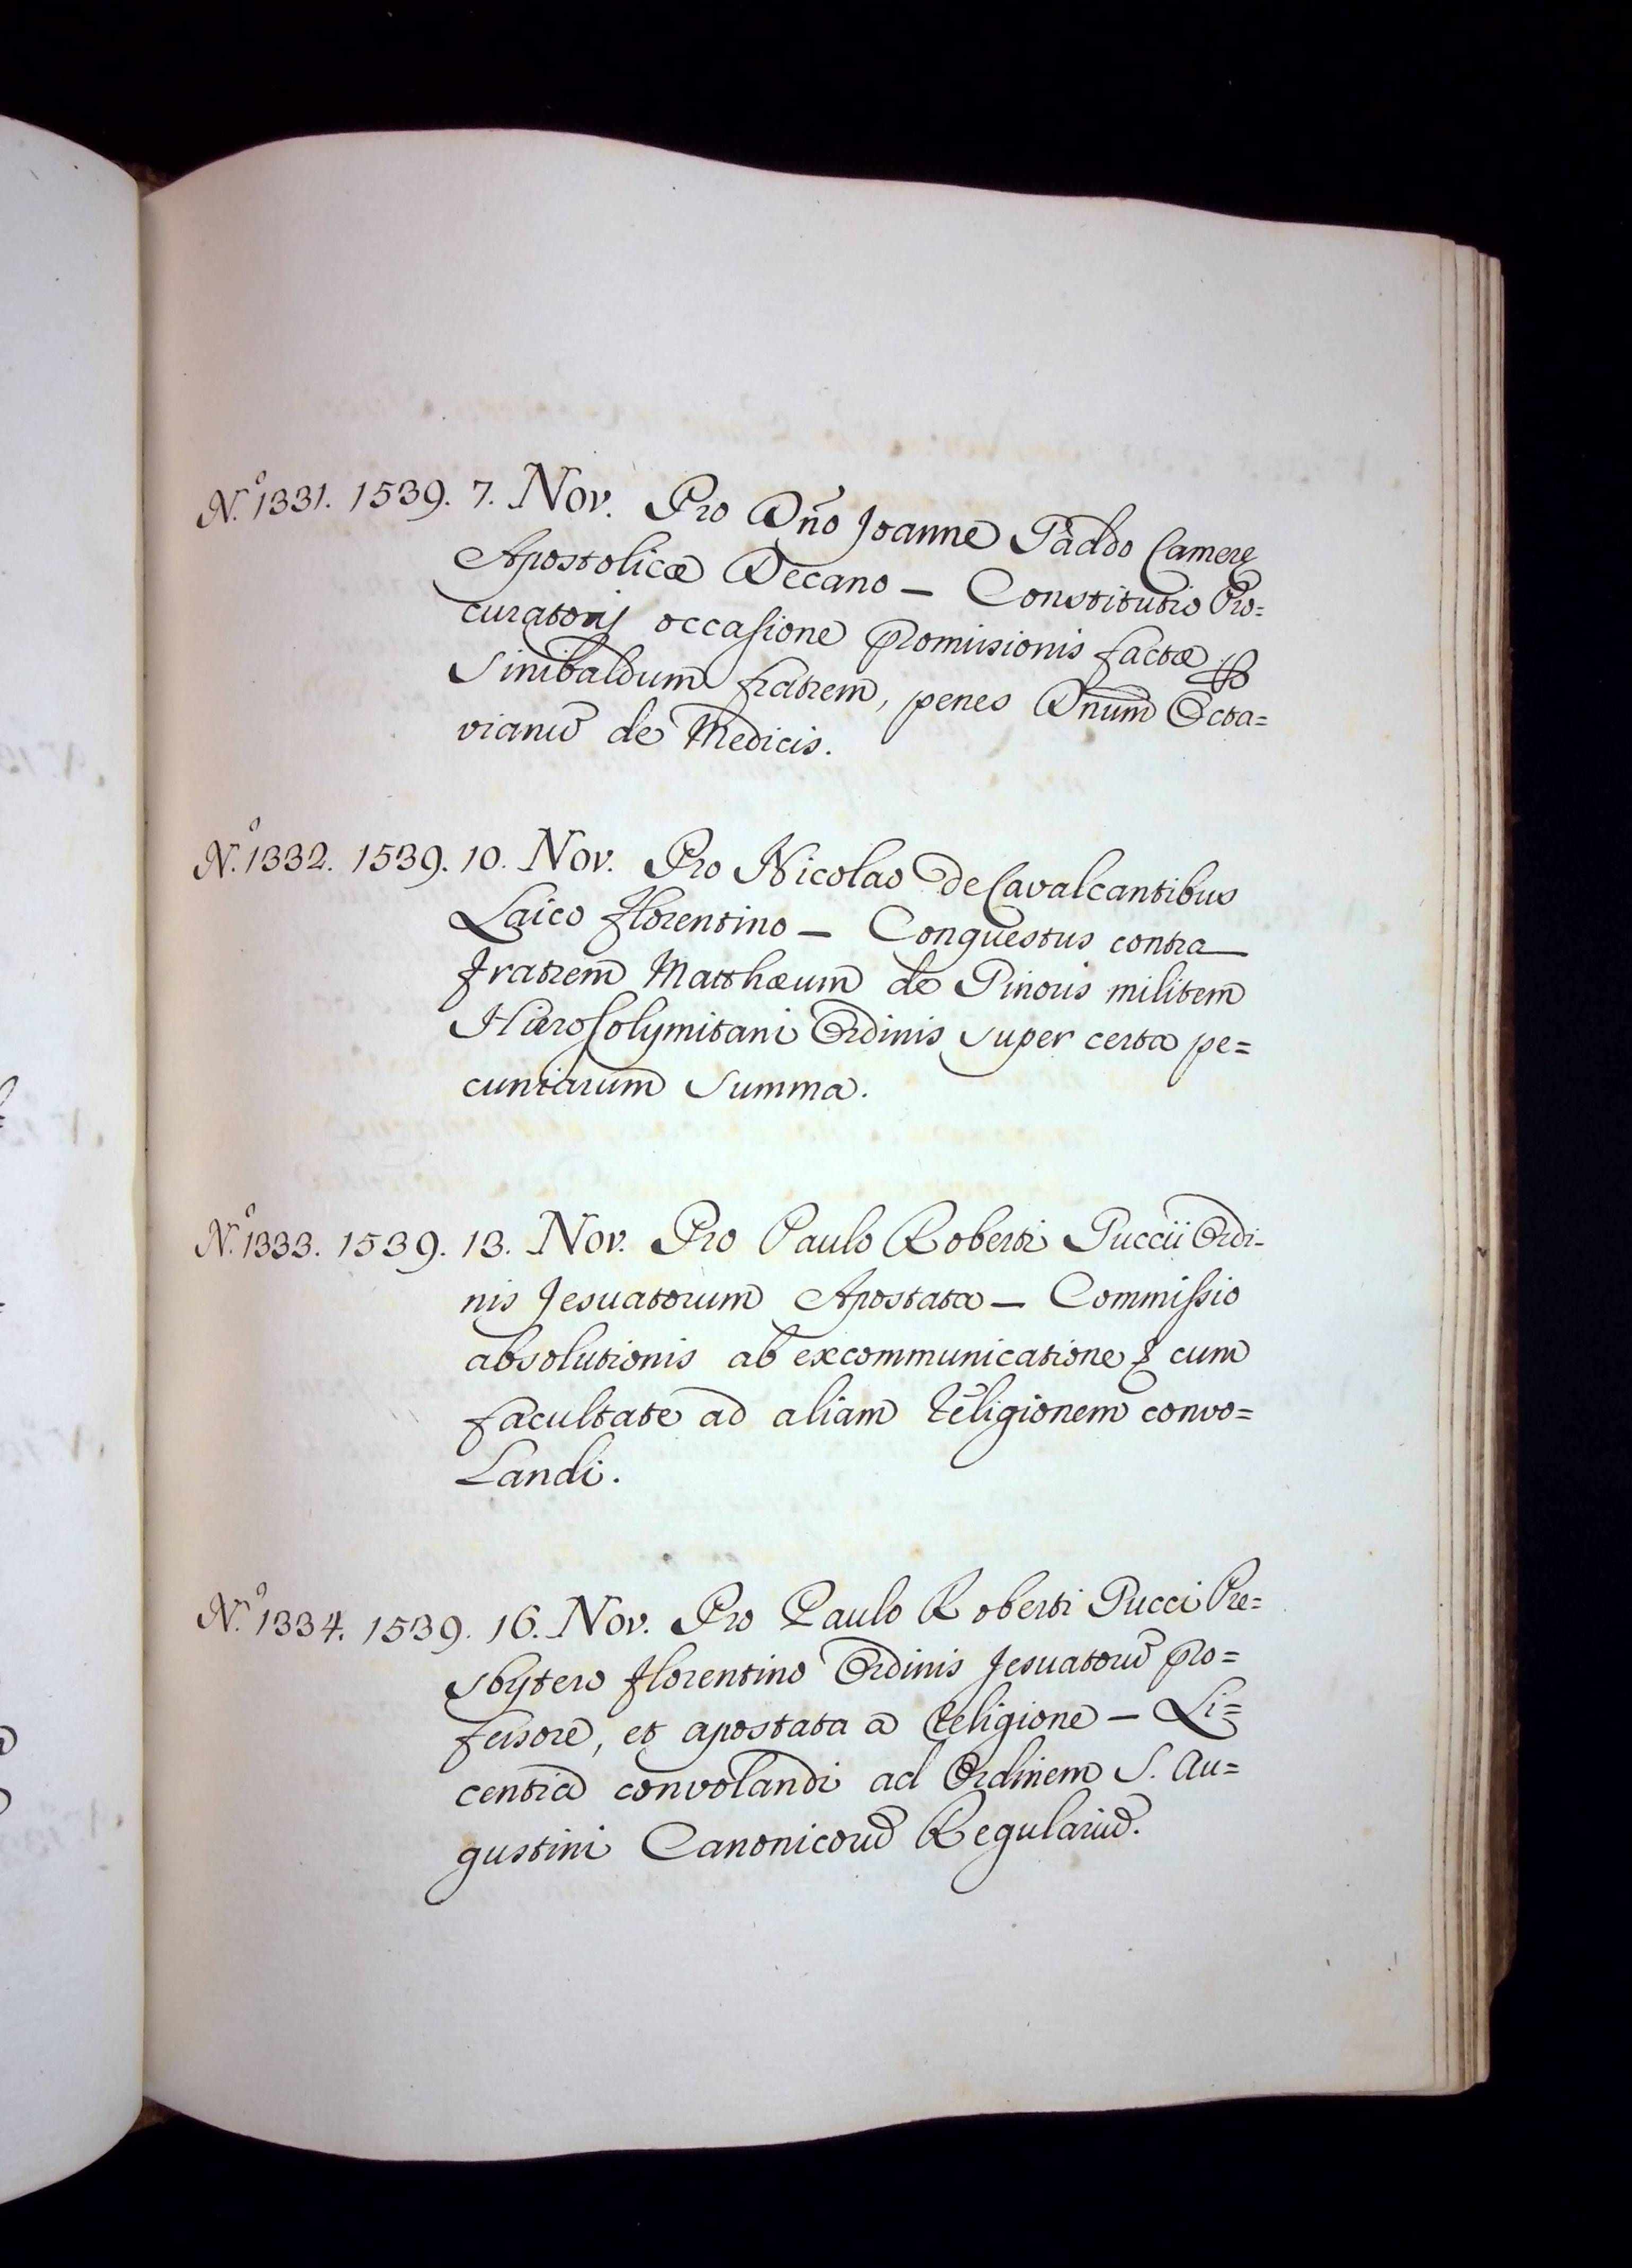 N.º 1331. 1539. 7. Nov. Pro Dño Joanne Gaddo Camerę
Apostolicæ Decano – Constitutio Pro=
curatoris occasione promissionis factæ per
Sinibaldum fratrem, penes Dnum Octa=
vianũ de Medicis.
N.º 1332. 1539. 10. Nov. Pro Nicolao de Cavalcantibus
Laico Florentino – Conquestus contra
Fratrem Matthæum de Ginoris militem
Hierosolymitani Ordinis super certa pe=
cuniarum summa.
N.º 1333. 1539. 13. Nov. Pro Paulo Roberti Puccii Ordi-
nis Jesuatorum Apostata – Commissio
absolutionis ab excommunicatione & cum
facultate ad aliam religionem convo=
Landi.
N.º 1334. 1539. 16. Nov. Pro Paulo Roberti Pucci Pre=
sbytero Florentino Ordinis Jesuatorũ pro=
fessore, et apostata a Religione – Li=
centia convolandi ad Ordinem S. Au=
gustini Canonicorũ Regulariũ.